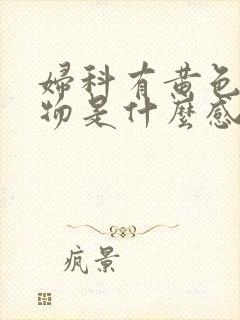 婦科有黄色
物是什麼感
疯景